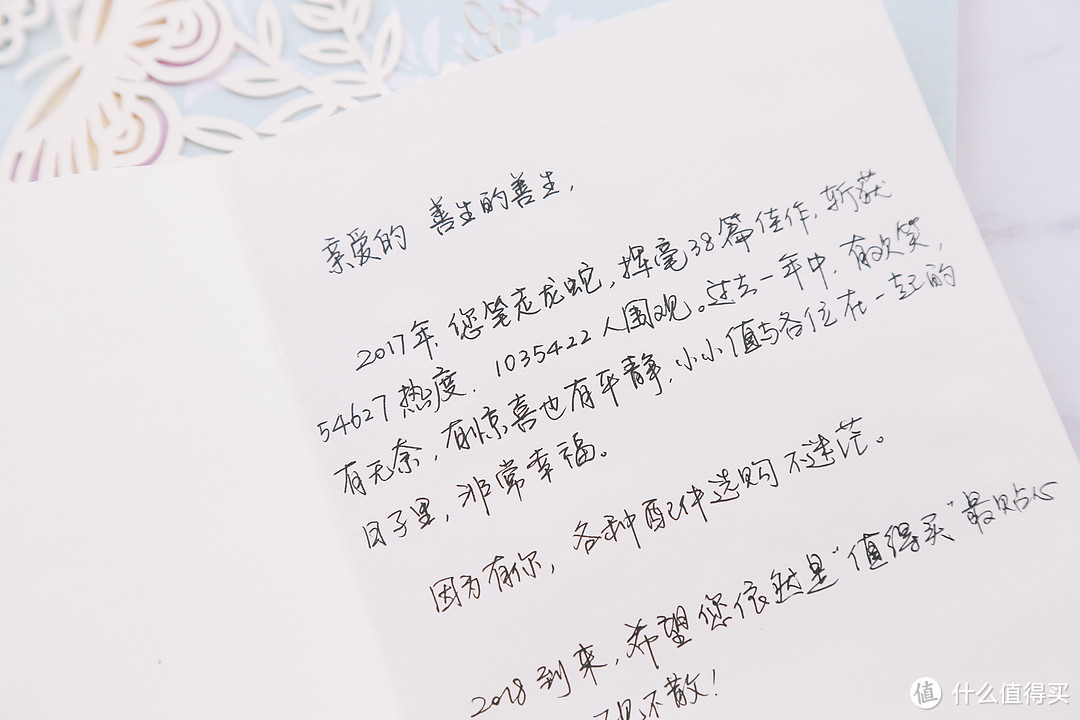 亲爱的 善生的善生,
2017年,您笔走龙蛇,挥毫38篇佳作,斩获
54627热度,1035422人围观。过去一年中,有欢笑,
有无奈,有惊喜也有平静,小小值与各位在一起的
日子里,非常幸福。
因为有你,各种配件选购不迷茫。
2018到来,希望您依然是"值得买"最贴心
不见不散!
值 什么值得买